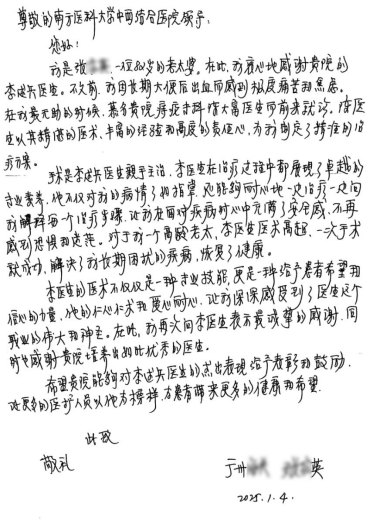 尊敬的南方医科大学中西结合医院领导:
您好!
我是张 一位80岁的老太婆。在此,我衷心地感谢贵院的
李述兵医生。不久前,我因长期大便后出血而感到极度痛苦和焦虑。
在我最无助的时候,慕名贵院痔疮专科 医师前来就诊。 医
生以其精湛的医术,丰富的经验和高度的责任心,为我制定了精准的治
疗方案。
手术是李述兵医生亲手主治,李医生在治疗过程中都展现了卓越的
专业素养,他不仅对我的病情了如指掌,还能够耐心地一边治疗一边向
我解释每一个治疗步骤,让我在面对疾病时心中充满了安全感,不再
感到恐惧和迷茫。对于我一个高龄老太,李医生医术高超,一次手术
就成功,解决了我长期困扰的疾病,恢复了健康。
李医生的医术不仅仅是一种专业技能,更是一种给予患者希望和
信心的力量,他的仁心仁术和爱心耐心,让我深深感受到了医生这个
职业的伟大和神圣。在此,我再次向李医生表示最诚挚的感谢,同
时也感谢贵院培养出如此优秀的医生。
希望贵院能够对李述兵医生的杰出表现给予表彰和鼓励,
让更多的医护人员以他为榜样,为患者带来更多的健康和希望。
此致
敬礼
广州 英
2025.1.4.